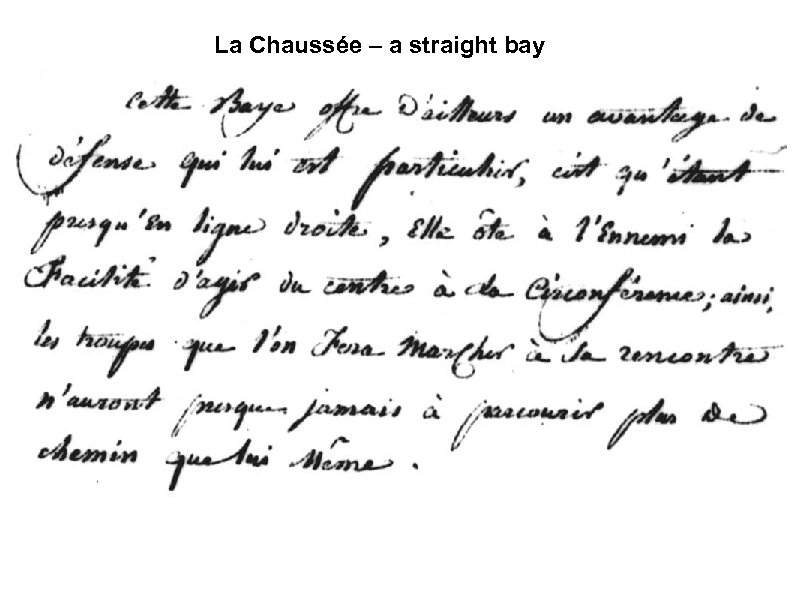 La Chaussée – a straight bay
Cette Baye offre d'ailleurs un avantage de
défense qui lui est particulier, c'est qu'étant
presqu'En ligne droite, Elle ôte à l'Ennemi la
Facilité d'agir du centre à la Circonférence; ainsi,
les troupes que l'on Fera Marcher à sa rencontre
n'auront presque jamais à parcourir plus de
chemin que lui Même.